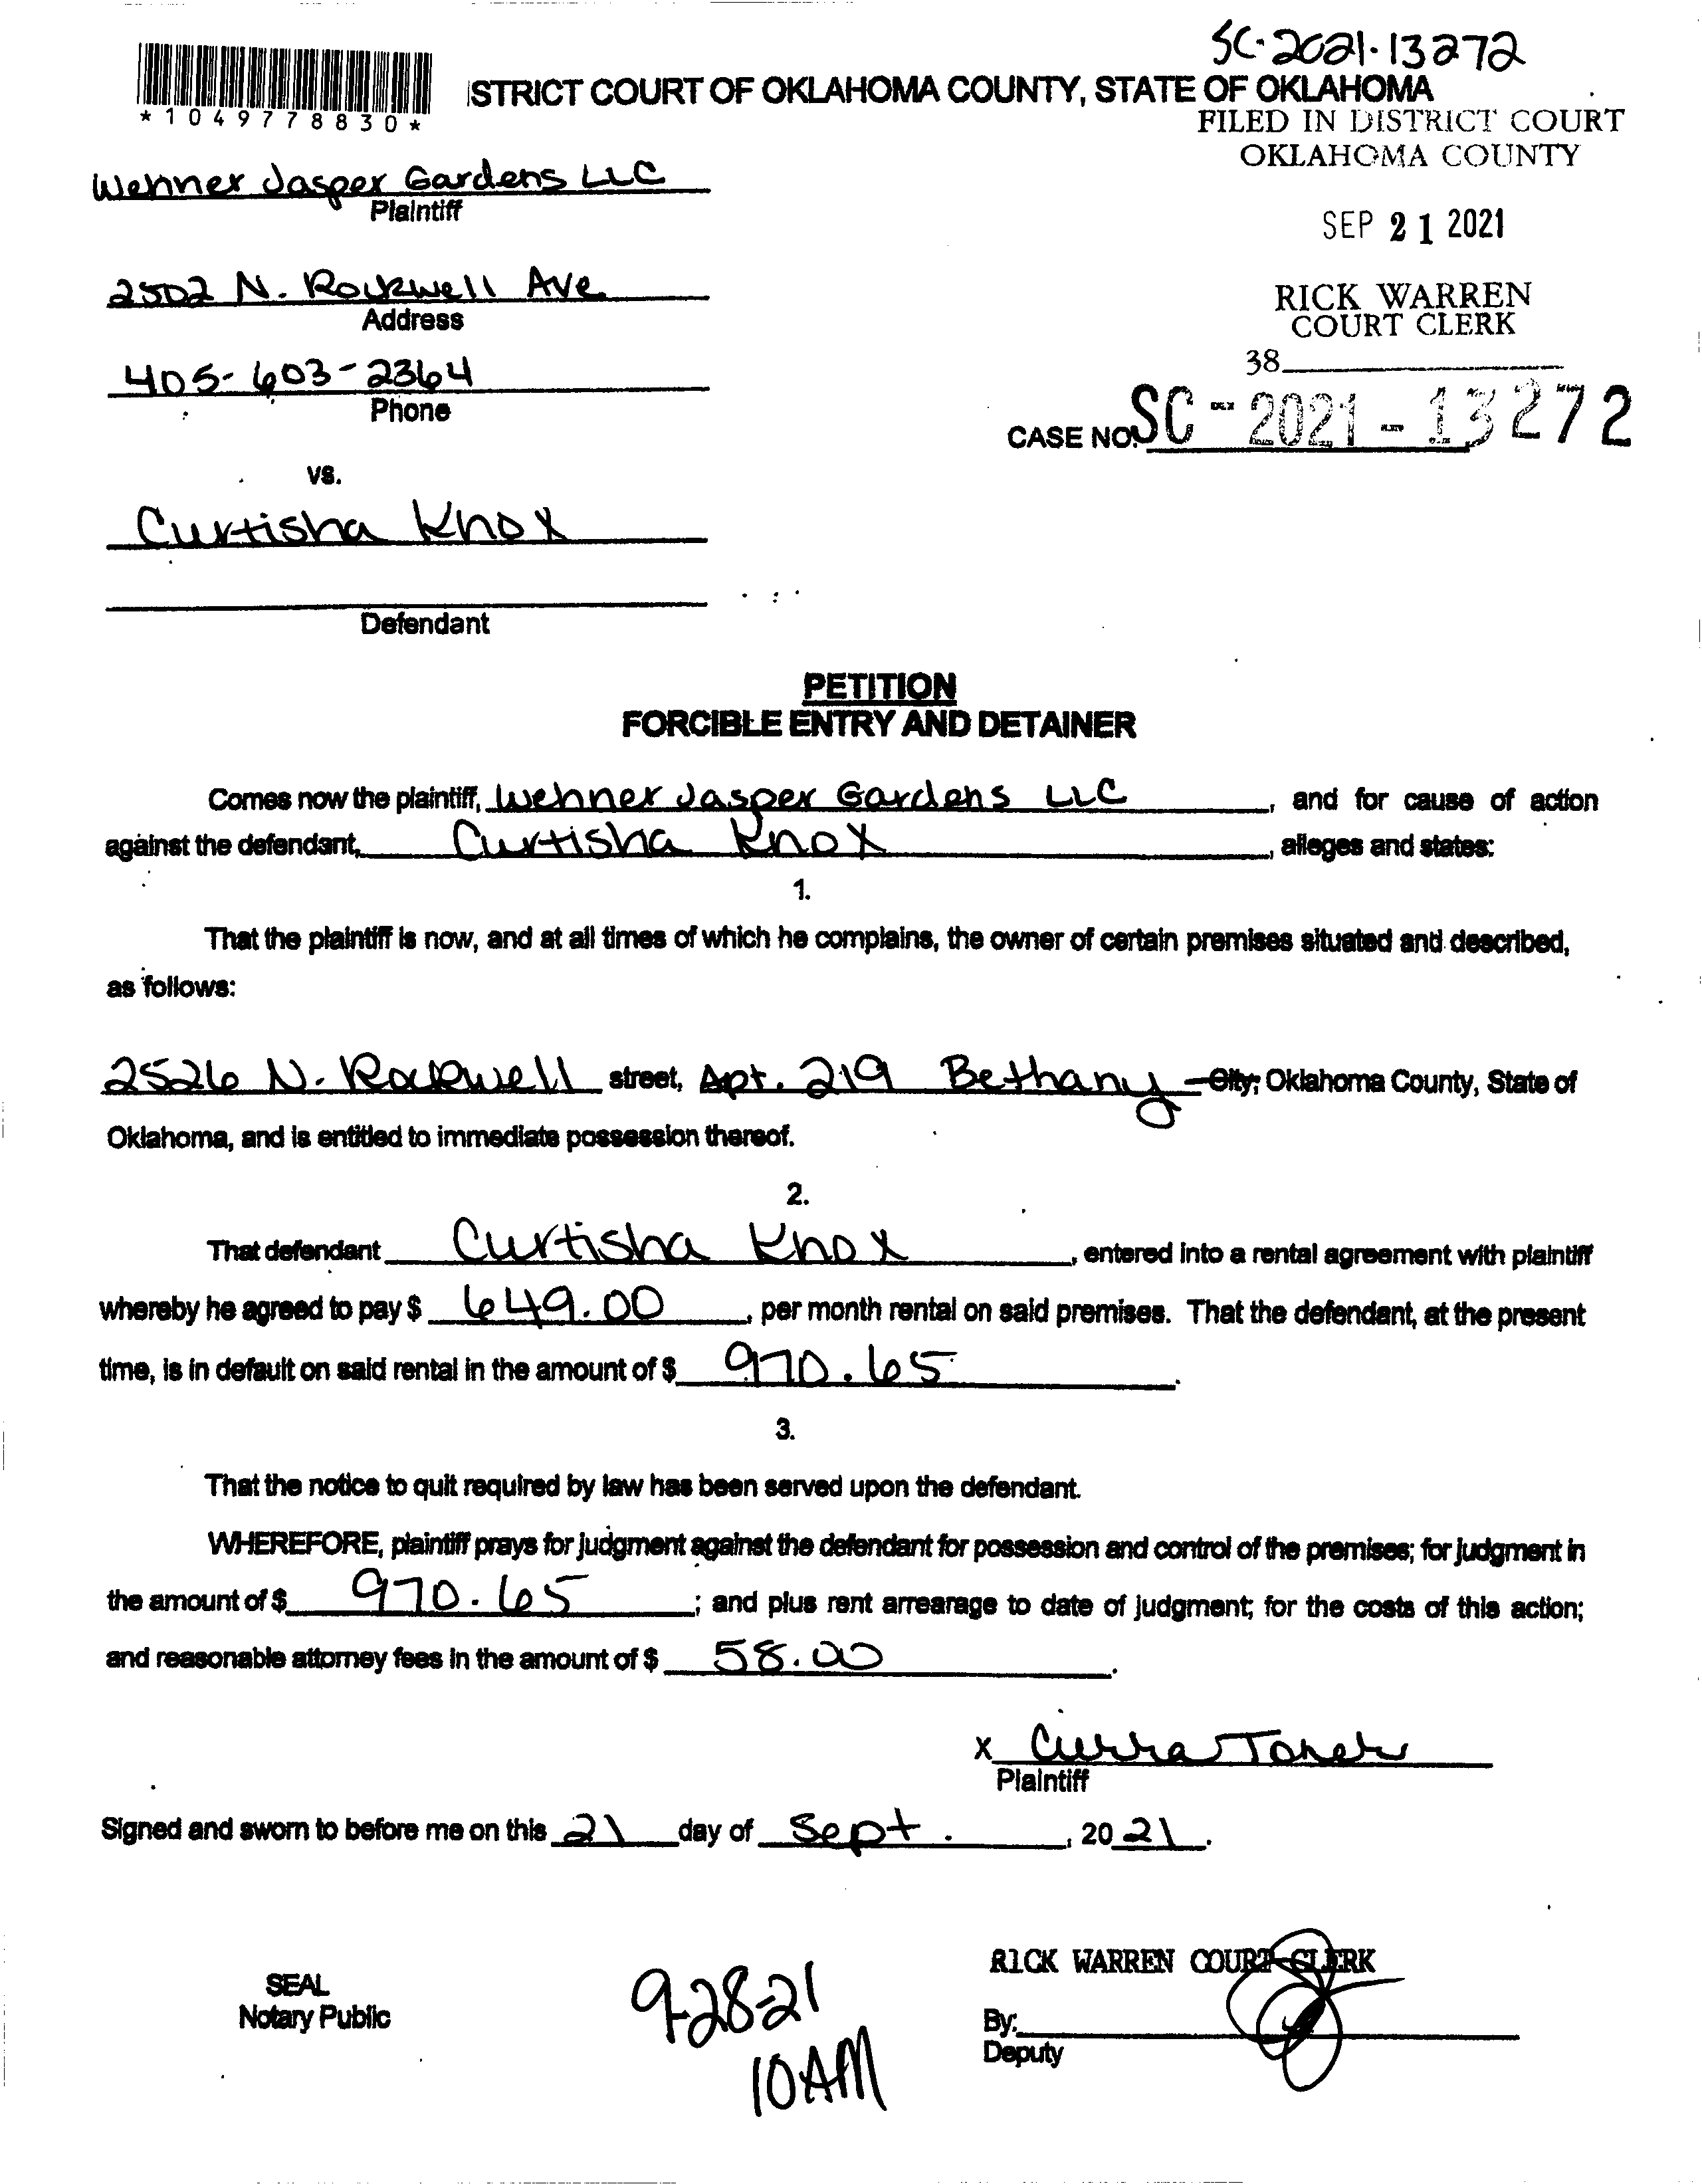 SC-2021-13272
*1049778830*
ISTRICT COURT OF OKLAHOMA COUNTY, STATE OF OKLAHOMA
FILED IN DISTRICT COURT
OKLAHOMA COUNTY
Wehner Jasper Gardens LLC
Plaintiff
SEP 21 2021
2502 N. Rockwell Ave.
Address
RICK WARREN
COURT CLERK
405-603-2364
Phone
38
CASE NO. SC-2021-13272
vs.
Curtisha Knox
Defendant
PETITION
FORCIBLE ENTRY AND DETAINER
Comes now the plaintiff, Wehner Jasper Gardens LLC, and for cause of action
against the defendant, Curtisha Knox, alleges and states:
1.
That the plaintiff is now, and at all times of which he complains, the owner of certain premises situated and described,
as follows:
2526 N. Rockwell street, Apt. 219 Bethany City, Oklahoma County, State of
Oklahoma, and is entitled to immediate possession thereof.
2.
That defendant Curtisha Knox, entered into a rental agreement with plaintiff
whereby he agreed to pay $ 649.00, per month rental on said premises. That the defendant, at the present
time, is in default on said rental in the amount of $ 970.65.
3.
That the notice to quit required by law has been served upon the defendant.
WHEREFORE, plaintiff prays for judgment against the defendant for possession and control of the premises; for judgment in
the amount of $ 970.65; and plus rent arrearage to date of judgment; for the costs of this action;
and reasonable attorney fees in the amount of $ 58.00.
X
Plaintiff
Signed and sworn to before me on this 21 day of Sept., 2021.
RICK WARREN COURT CLERK
SEAL
Notary Public
9-28-21
10AM
By:
Deputy